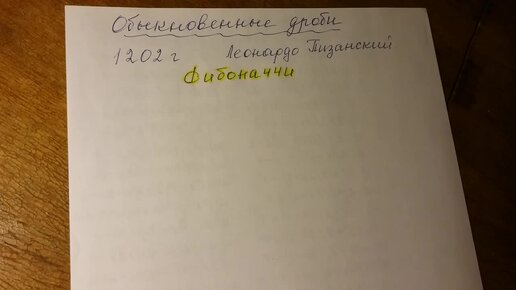 Обыкновенные дроби
1202 г Леонардо Пизанский
Фибоначчи